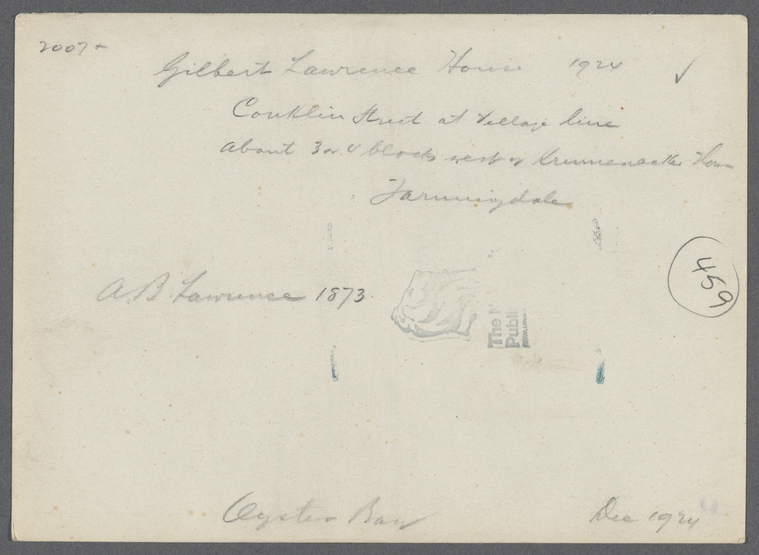 2007+
Gilbert Lawrence House 1924 ✓
Conklin Street at Village line
About 3 or 4 blocks west of Krumenacker House
Farmingdale
459
A. B. Lawrence 1873
The N
Publi
Oyster Bay Dec 1924